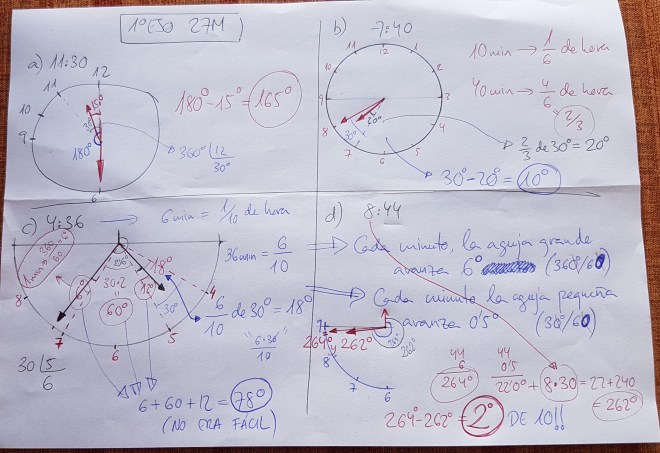 1º ESO 27M
a) 11:30
12
11
10
9
6
15º
30º
180º
180º - 15º = 165º
360º |12
30º
b) 7:40
12
1
2
3
4
5
6
7
8
9
10
11
20º
30º
10 min → 1/6 de hora
40 min → 4/6 de hora
= 2/3
2/3 de 30º = 20º
30º - 20º = 10º
c) 4:36 → 6 min = 1/10 de hora
36 min = 6/10
18º
12º
6º
30·2
60º
30º
8
7
6
5
4
6/10 de 30º = 18º
"6·30/10"
30 |5
6
6 + 60 + 12 = 78º
(NO ERA FÁCIL)
d) 8:44
⇒ Cada minuto, la aguja grande
avanza 6º (360º/60)
⇒ Cada minuto la aguja pequeña
avanza 0'5º (30º/60)
9
8
7
6
264º y 262º
264º
262º
44
6
264º
44
0'5
22'0º + 8·30 = 22 + 240
= 262º
264º - 262º = 2º DE 10!!